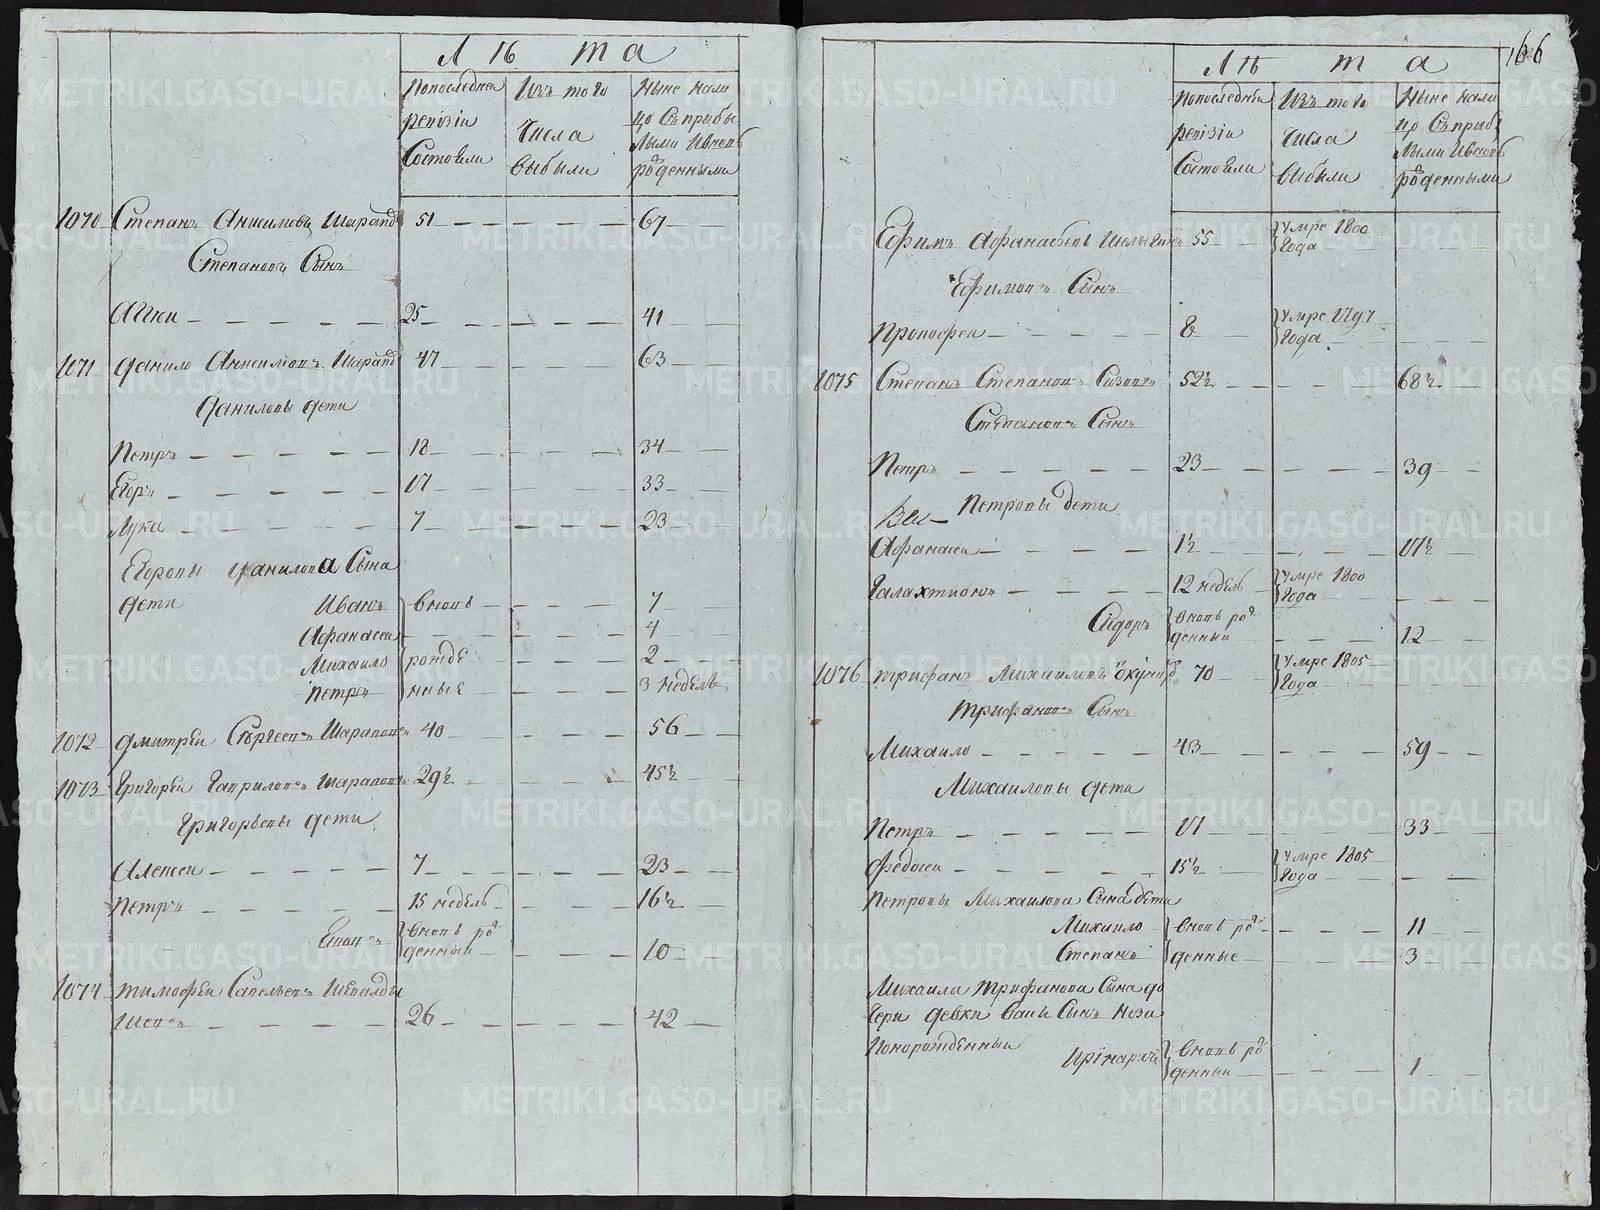 Лѣта
Попоследней
ревизiи
Состояли
Изъ того
Числа
выбыли
Ныне нали
цо Съ прибы
лыми Ивновь
рожденными
1070 Степанъ Анисимовъ Шарапо 51 67
Степановъ Сынъ
Аггеи 25 41
1071 Данило Анисимовъ Шарапо 47 63
Даниловы дети
Петръ 18 34
Егоръ 17 33
Лука 7 23
Егоровы Данилова Сына
дети Иванъ вновь 7
Афанасеи 4
Михаило рожде 2
Петръ нные 3 неделъ
1072 Дмитреи Сергеевъ Шараповъ 40 56
1073 Григореи Гавриловъ Шараповъ 29½ 45½
Григорьевы дети
Алексеи 7 23
Петръ 15 неделъ 16½
вновь рож
денныи 10
1074 Тимофеи Савельевъ
26 42
166
Лѣта
Попоследнеи
ревизiи
Состояли
Изъ того
Числа
выбыли
Ныне нали
цо Съ прибы
лыми Ивновь
рожденными
Ефимъ Афанасьевъ Шелыгинъ 55 умре 1800
года
Ефимовъ Сынъ
Прокофеи 8 умре 1797
года
1075 Степанъ Степановъ Сизовъ 52½ 68½
Степановъ Сынъ
Петръ 23 39
Петровы дети
Афанасеи 1½ 17½
Галахтионъ 12 неделъ умре 1800
года
Сидоръ вновь рож
денныи 12
1076 Трифанъ Михаиловъ 70 умре 1805
года
Трифановъ Сынъ
Михаило 43 59
Михаиловы дети
Петръ 17 33
Федосеи 15½ умре 1805
года
Петровы Михаилова Сына дети
Михаило вновь рож 11
Степанъ денные 3
Михаила Трифанова Сына до
чери девки Сынъ Неза
коннорожденныи
Иринархъ вновь рож
денныи 1
METRIKI.GASO-URAL.RU